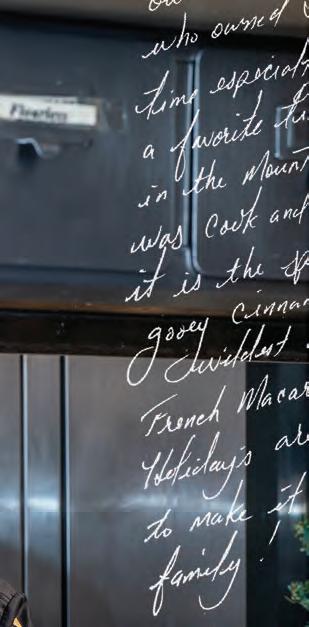 who owned
time especial
a favorite
in the mount
was Cook and
it is the
gooey cinna
wildest
French Macar
Holiday's are
to make it
family!